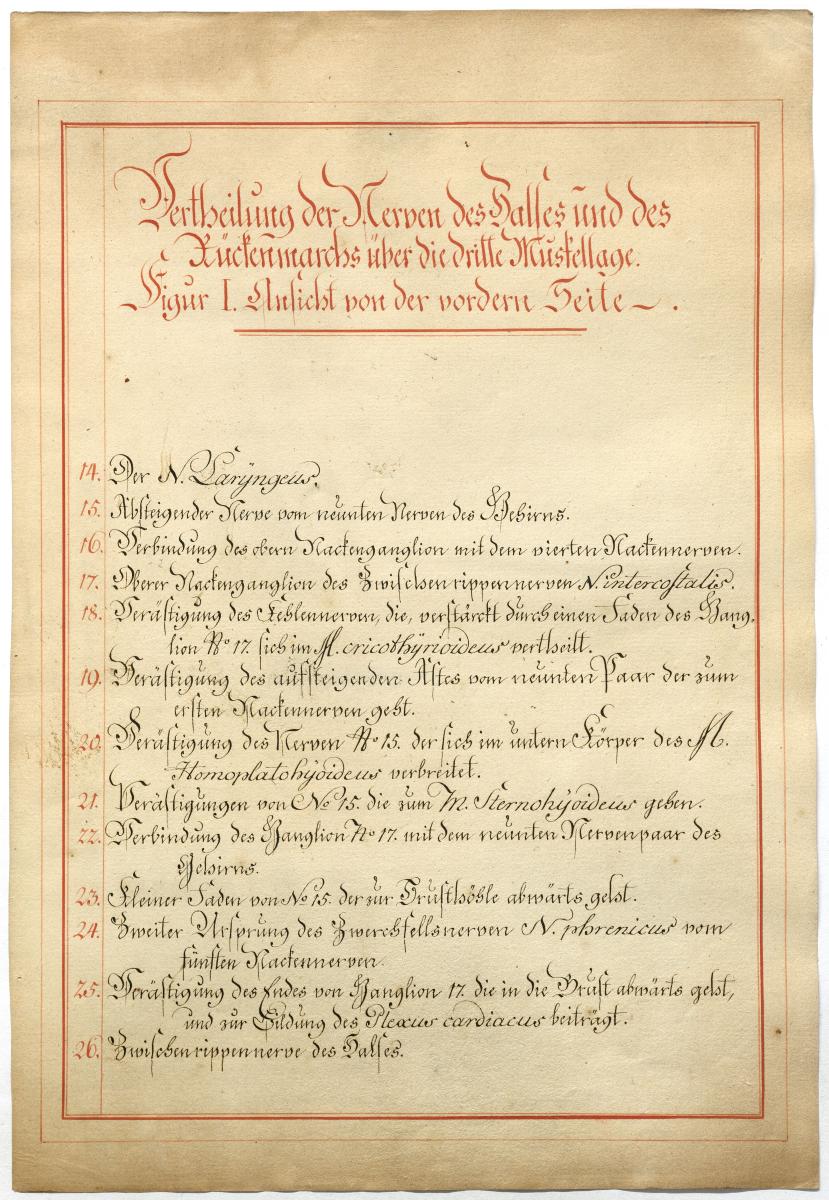 Vertheilung der Nerven des Halses und des
Rückenmarchs über die dritte Muskellage.
Figur I. Ansicht von der vordern Seite.
14. Der N. Larÿngeus.
15. Absteigender Nerve vom neunten Nerven des Gehirns.
16. Verbindung des obern Nackenganglion mit dem vierten Nackennerven.
17. Oberer Nackenganglion des Zwischenrippennerven N. intercostalis.
18. Verästigung des Kehlennerven, die, verstärckt durch einen Faden des Gang,
lion No 17. sich im M. cricothÿrioideus vertheilt.
19. Verästigung des aufsteigenden Astes vom neunten Paar der zum
ersten Nackennerven geht.
20. Verästigung des Nerven No 15. der sich im untern Körper des M.
Homoplatohÿoideus verbreitet.
21. Verästigungen von No 15. die zum M. Sternohÿoideus gehen.
22. Verbindung des Ganglion No 17. mit dem neunten Nervenpaar des
Gehirns.
23. Kleiner Faden von No 15. der zur Brusthöhle abwärts geht.
24. Zweiter Ursprung des Zwerchfellsnerven N. phrenicus vom
fünften Nackennerven.
25. Verästigung des Endes von Ganglion 17. die in die Brust abwärts geht,
und zur Bildung des Plexus cardiacus beiträgt.
26. Zwischenrippennerve des Halses.